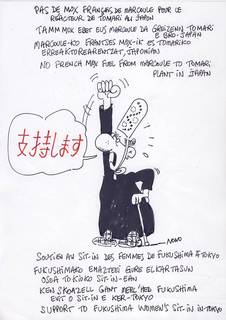 PAS DE MOX FRANÇAIS DE MARCOULE POUR LE
RÉACTEUR DE TOMARI AU JAPON
TAMM MOX EBET EUS MARCOULE DA GREIZENN TOMARI
E BRO-JAPAN
MARCOULE-KO FRANTSES MOX-IK EZ TOMARIKO
ERREAKTOREARENTZAT, JAPONIAN
NO FRENCH MOX FUEL FROM MARCOULE TO TOMARI
PLANT IN JAPAN
支持します
NONO
SOUTIEN AU SIT-IN DES FEMMES DE FUKUSHIMA À TOKYO
FUKUSHIMAKO EMAZTEEI GURE ELKARTASUN
OSOA TOKIOKO SIT-IN-EAN
KEN SKOAZELL GANT MERC'HED FUKUSHIMA
EVIT O SIT-IN E KER-TOKYO
SUPPORT TO FUKUSHIMA WOMEN'S SIT-IN IN TOKYO